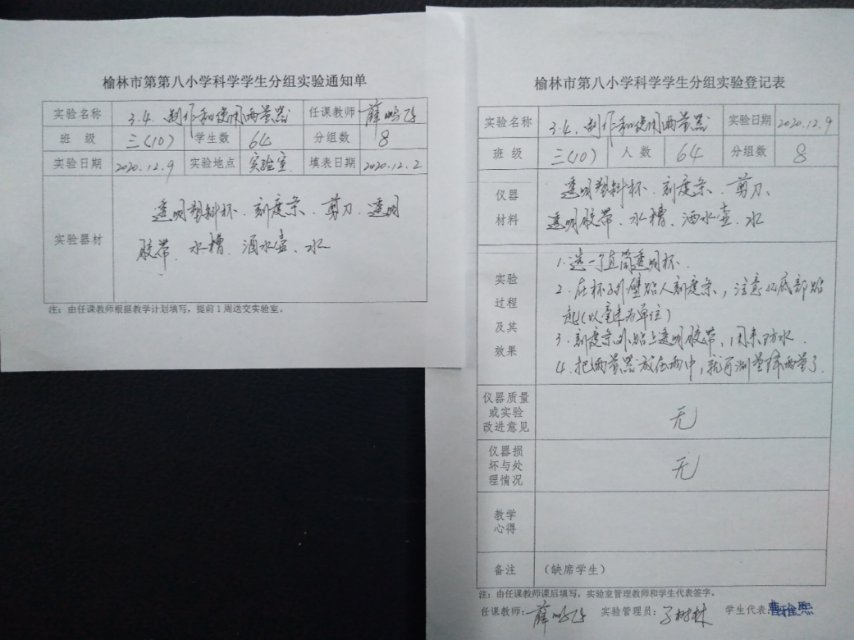 榆林市第第八小学科学学生分组实验通知单
实验名称 3.4.制作和使用雨量器 任课教师 薛
班 级 三(10) 学生数 64 分组数 8
实验日期 2020.12.9 实验地点 实验室 填表日期 2020.12.2
实验器材 透明塑料杯、刻度条、剪刀、透明
胶带、水槽、洒水壶、水
注:由任课教师根据教学计划填写,提前1周送交实验室。
榆林市第第八小学科学学生分组实验登记表
实验名称 3.4.制作和使用雨量器 实验日期 2020.12.9
班 级 三(10) 人 数 64 分组数 8
仪器
材料
透明塑料杯、刻度条、剪刀、
透明胶带、水槽、洒水壶、水
实验
过程
及其
效果
1.选一个直筒透明杯.
2.在杯子外壁贴入刻度条,注意从底部贴
起(以毫米为单位)
3.刻度条外贴上透明胶带,用来防水.
4.把雨量器放在雨中,就可测量降雨量了.
仪器质量
或实验
改进意见
无
仪器损
坏与处
理情况
无
教学
心得
备注 (缺席学生)
注:由任课教师课后填写,实验室管理教师和学生代表签字。
任课教师: 薛 实验管理员: 树林 学生代表: 曹雅熙